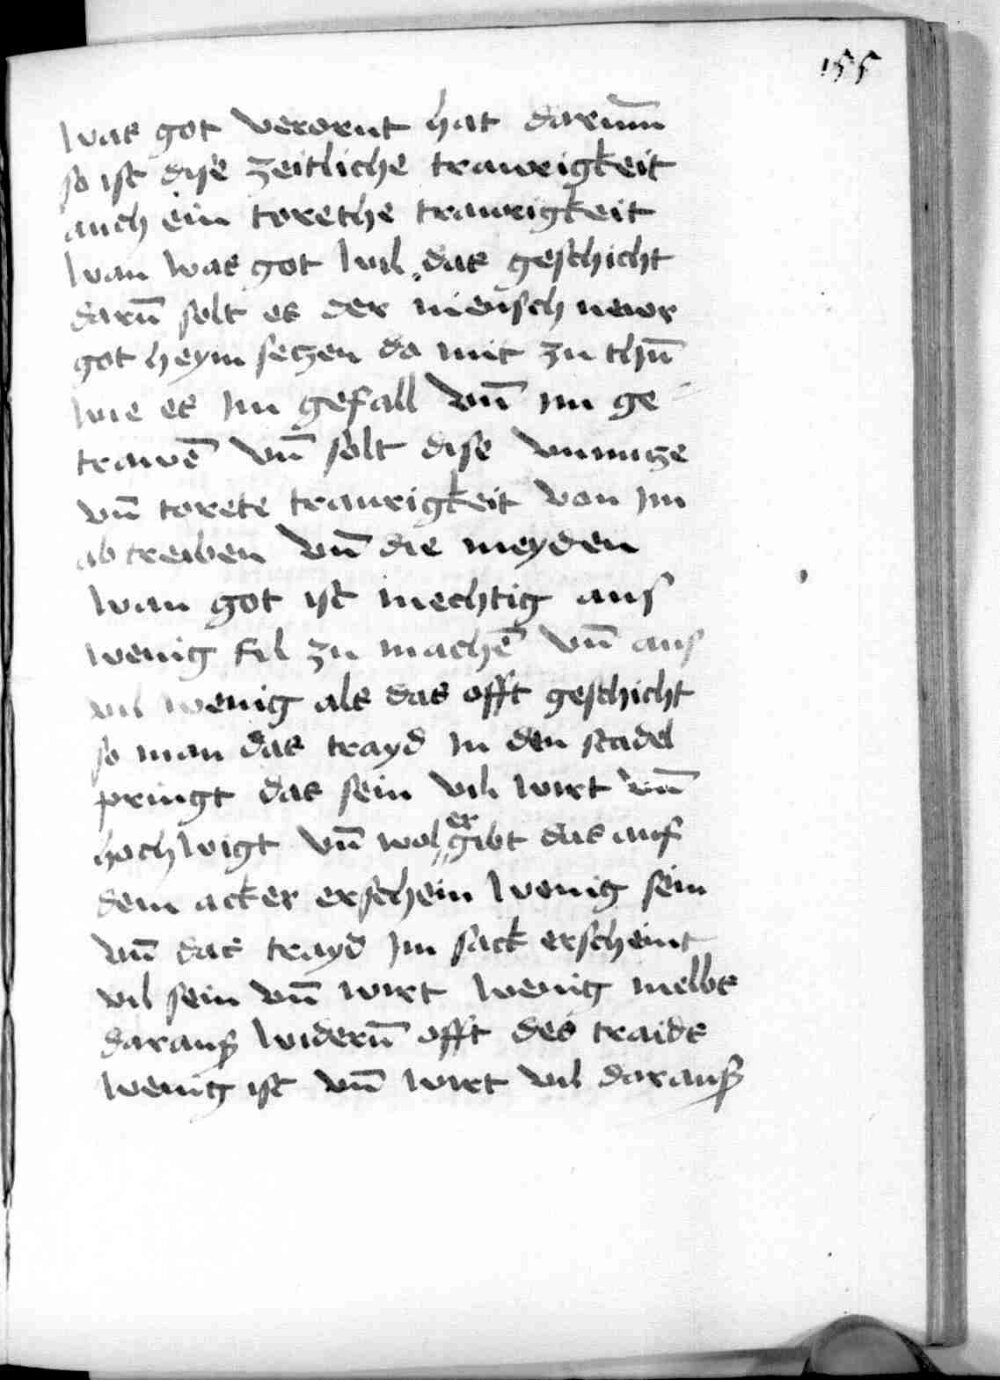 155
was got verornt hat darum̄
so ist dise zeitliche trawrigkeit
auch ein torethe trawrigkeit
wan was got wil das geschicht
darū solt es der mensch newr
got heym seczen da mit zu thū
wie es im gefall vn̄ im ge
trawē vn̄ solt dise vnnucze
vn̄ torete traurigkeit von im
ab treiben vn̄ die meyden
wan got ist mechtig aus
wenig fil zu machē vn̄ aus
vil wenig als das offt geschicht
so man das trayd in den stadel
pringt das sein vil wirt vn̄
hoch wigt vn̄ wol er gibt das auf
dem acker erschein wenig sein
vn̄ das trayd im sack erscheint
vil sein vn̄ wirt wenig melbs
darauß widerū offt des traids
wenig ist vn̄ wirt vil darauß